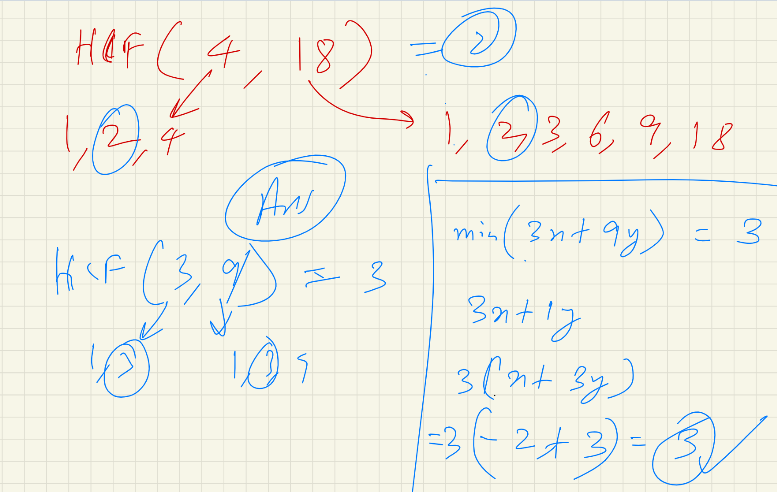 HCF ( 4 , 18 ) = 2
1, 2, 4
1, 2, 3, 6, 9, 18
Ans
HCF ( 3, 9 ) = 3
1, 3
1, 3 9
min ( 3x + 9y ) = 3
3x + 1y
3 ( x + 3y )
= 3 ( - 2 + 3 ) = 3 ✓